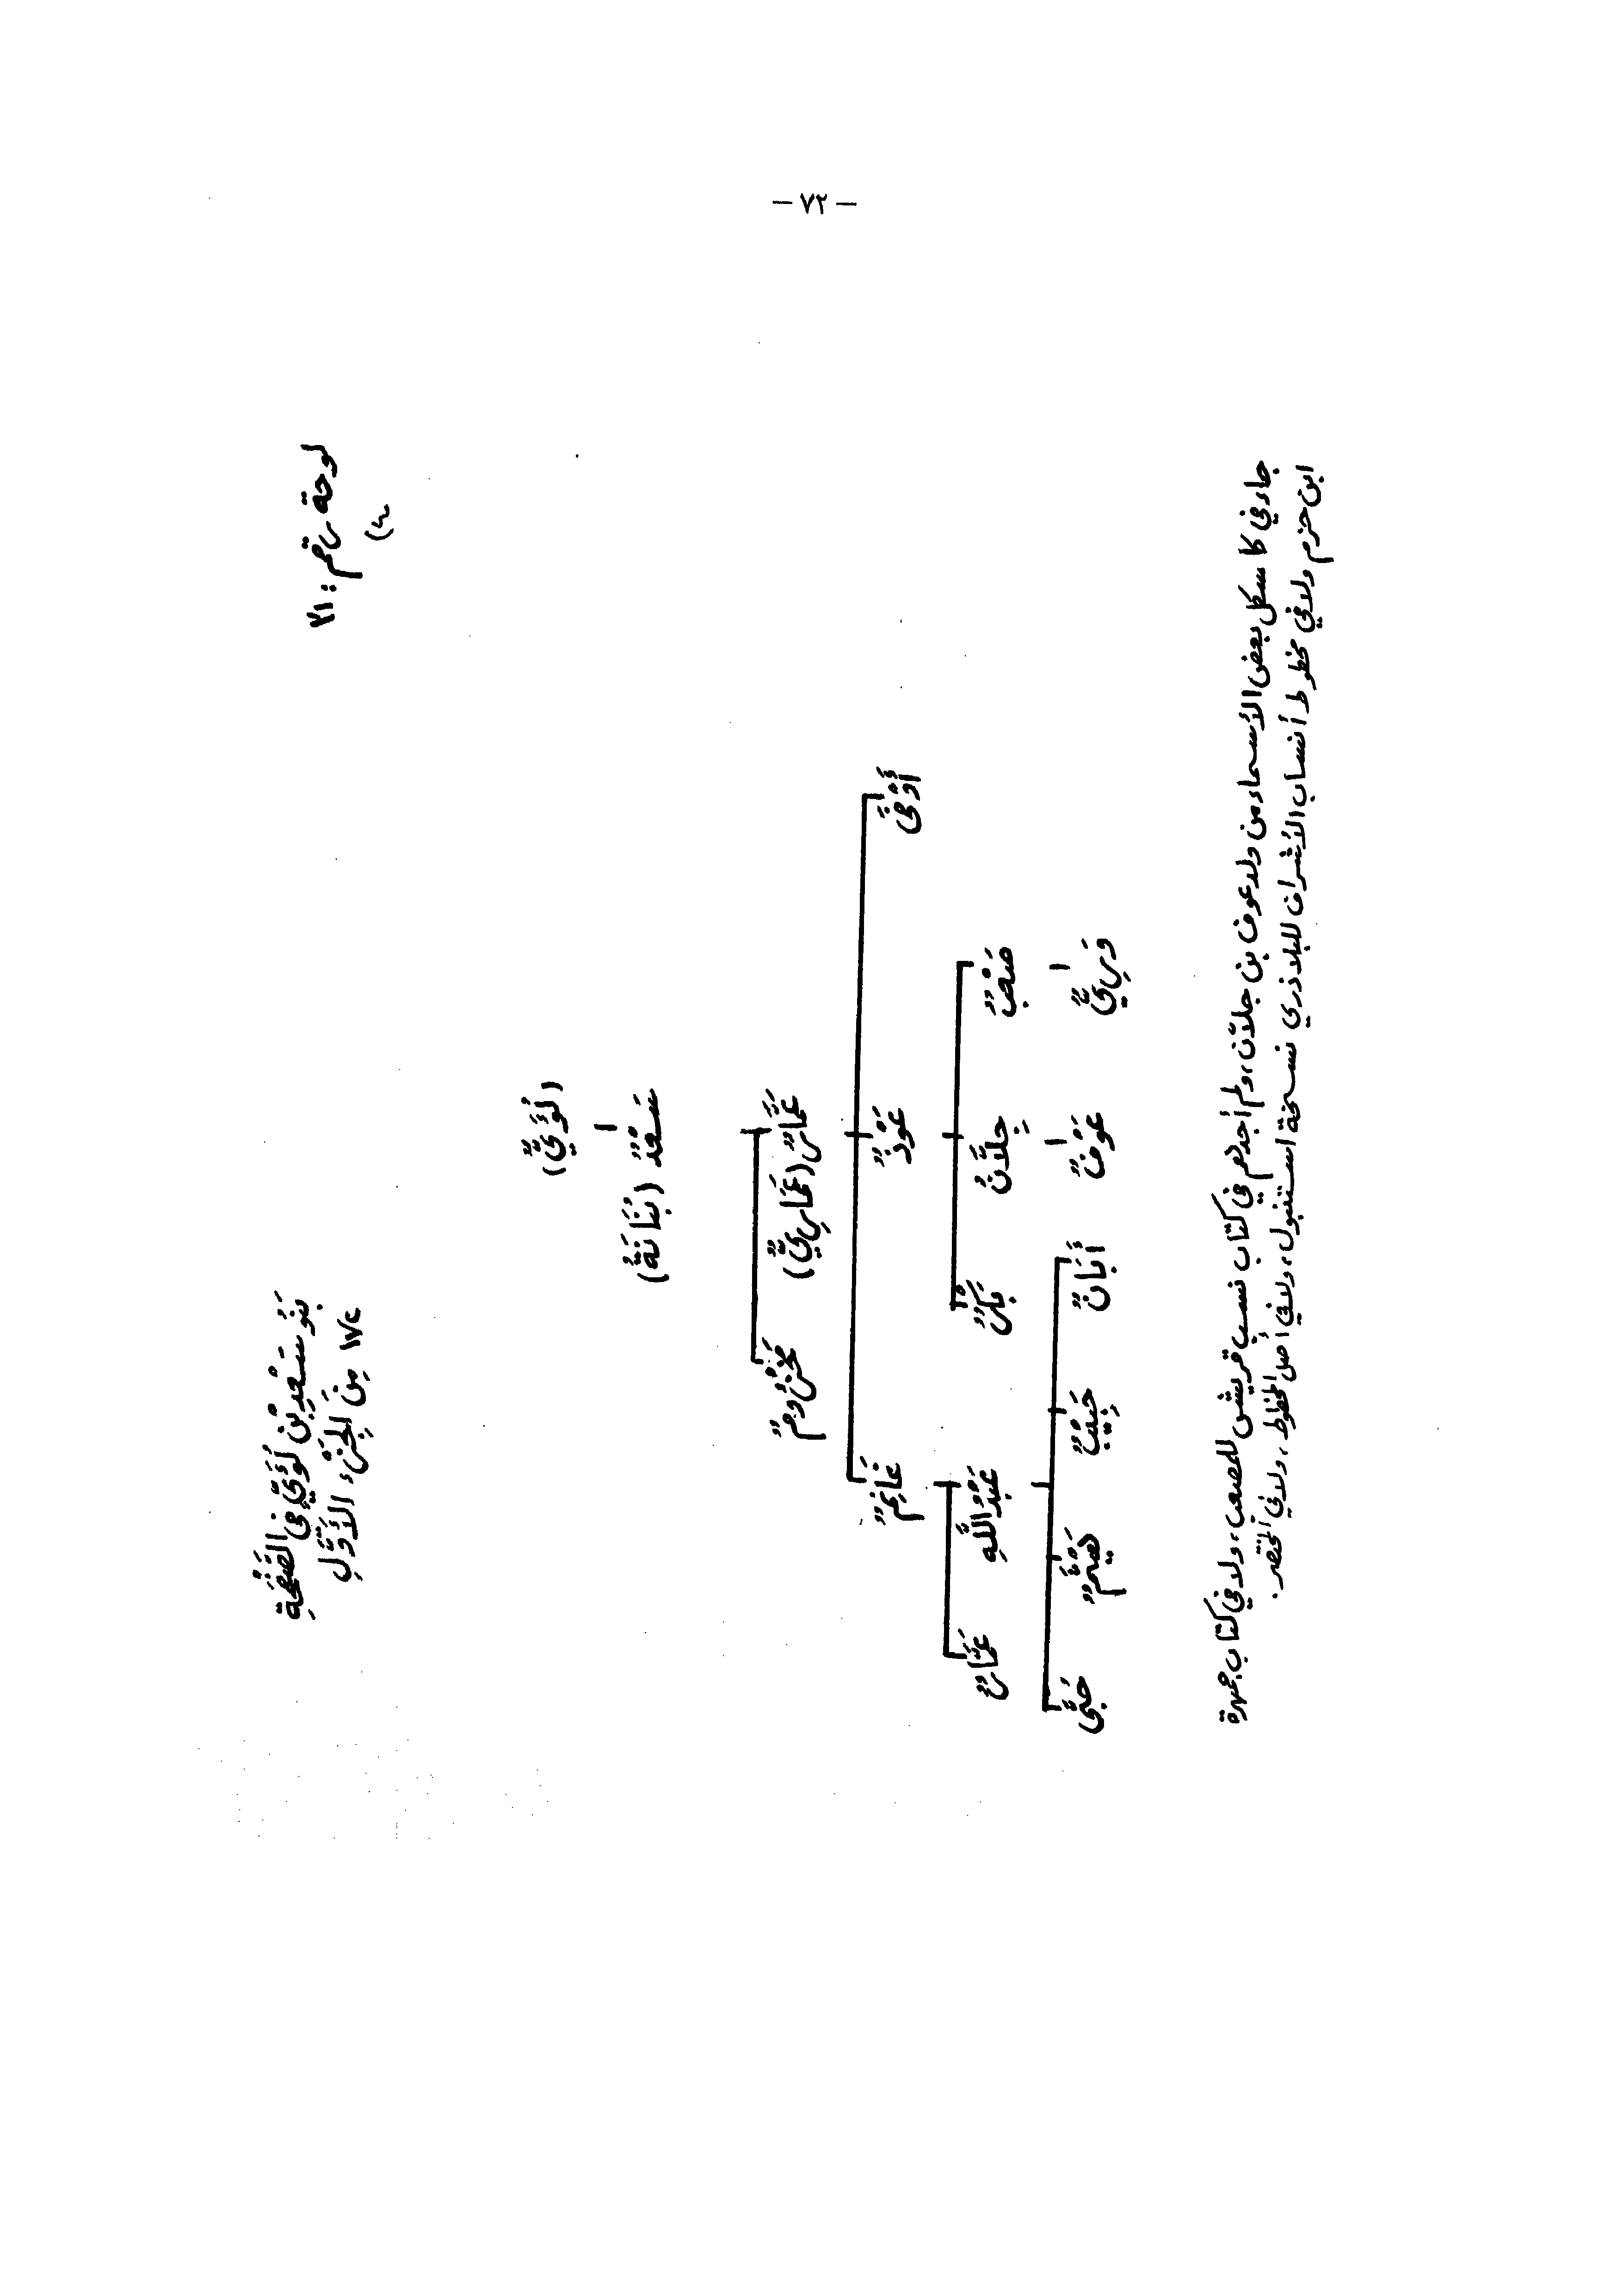 - ٧٢ -
لوحة رقم: ٢١
بَنُو سَعْدِ بْنِ لُؤَيٍّ فِي الصَّفْحَةِ
١٧٤ مِنَ الْجُزْءِ الأَوَّلِ
(لُؤَيٌّ)
سَعْدٌ (بُنَانَةُ)
عَمَّارٌ (عَمَّارِيٌّ) مَخْزُومٌ
أَوْفَى عَوْذٌ غَانِمٌ
صَعْبٌ جِلَّانُ بَكْرٌ عَبْدُ اللَّهِ عَمَّارٌ
وَرِيٌّ عَوْفٌ أَبَانٌ حَبِيبٌ هَيْثَمٌ حُبَّى
جاء في كاسكل بعض الأسماء من ولد عوف بن جلاّن، ولم أجدهم في كتاب نسب قريش للمصعب، ولا في كتاب جمهرة
ابن حزم ولا في مخطوط أنساب الأشراف للبلاذري نسخة استنبول، ولا في أصل المخطوط، ولا في المختصر.